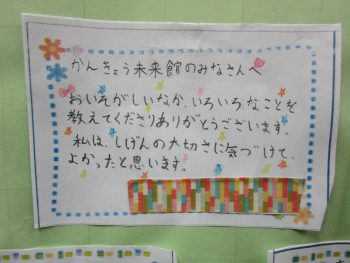 かんきょう未来館のみなさんへ
おいそがしいなか、いろいろなことを
教えてくださりありがとうございます。
私は、しげんの大切さに気づけて、
よかったと思います。